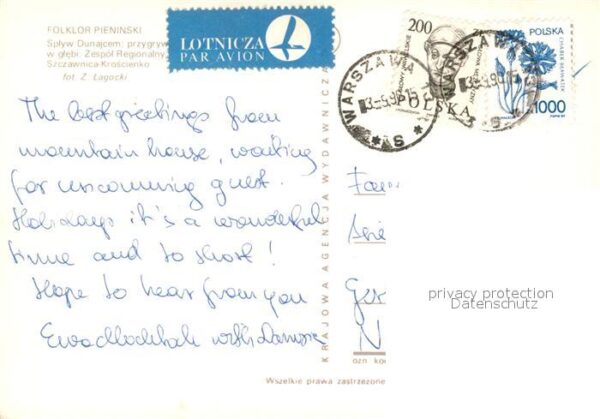 FOLKLOR PIENINSKI
Spływ Dunajcem: przygryw
w głębi: Zespół Regionalny
Szczawnica-Krościenko
fot. Z. Łagocki
LOTNICZA
PAR AVION
200
POLSKA
WARSZAWA
WARSZAWA
POLSKA
CHABER BŁAWATEK
1000
The best greetings from
mountain house, waiting
for uncomming guest.
Holidays it's a wonderful
time and to short!
Hope to hear from you
with
KRAJOWA AGENCJA WYDAWNICZA
Ger
N
privacy protection
Datenschutz
Wszelkie prawa zastrzeżone